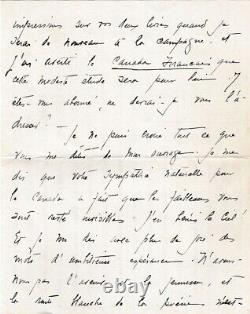 impressions sur vos deux livres quand je
serai de nouveau à la campagne, et
j'ai averti le Canada Français que
cette modeste étude sera pour lui. Y
êtes-vous abonné, ou devrai-je vous l'a-
dresser?
— Je ne puis croire tout ce que
vous me dites de mon ouvrage. Je me
dis que votre sympathie naturelle pour
le Canada a fait que les faiblesses vous
sont restées invisibles. J'en bénis le Ciel!
Et je me dis avec plus de joie des
mots d'ambitieuse espérance. N'avons-
nous pas l'avenir, la jeunesse, et
la route blanche de la